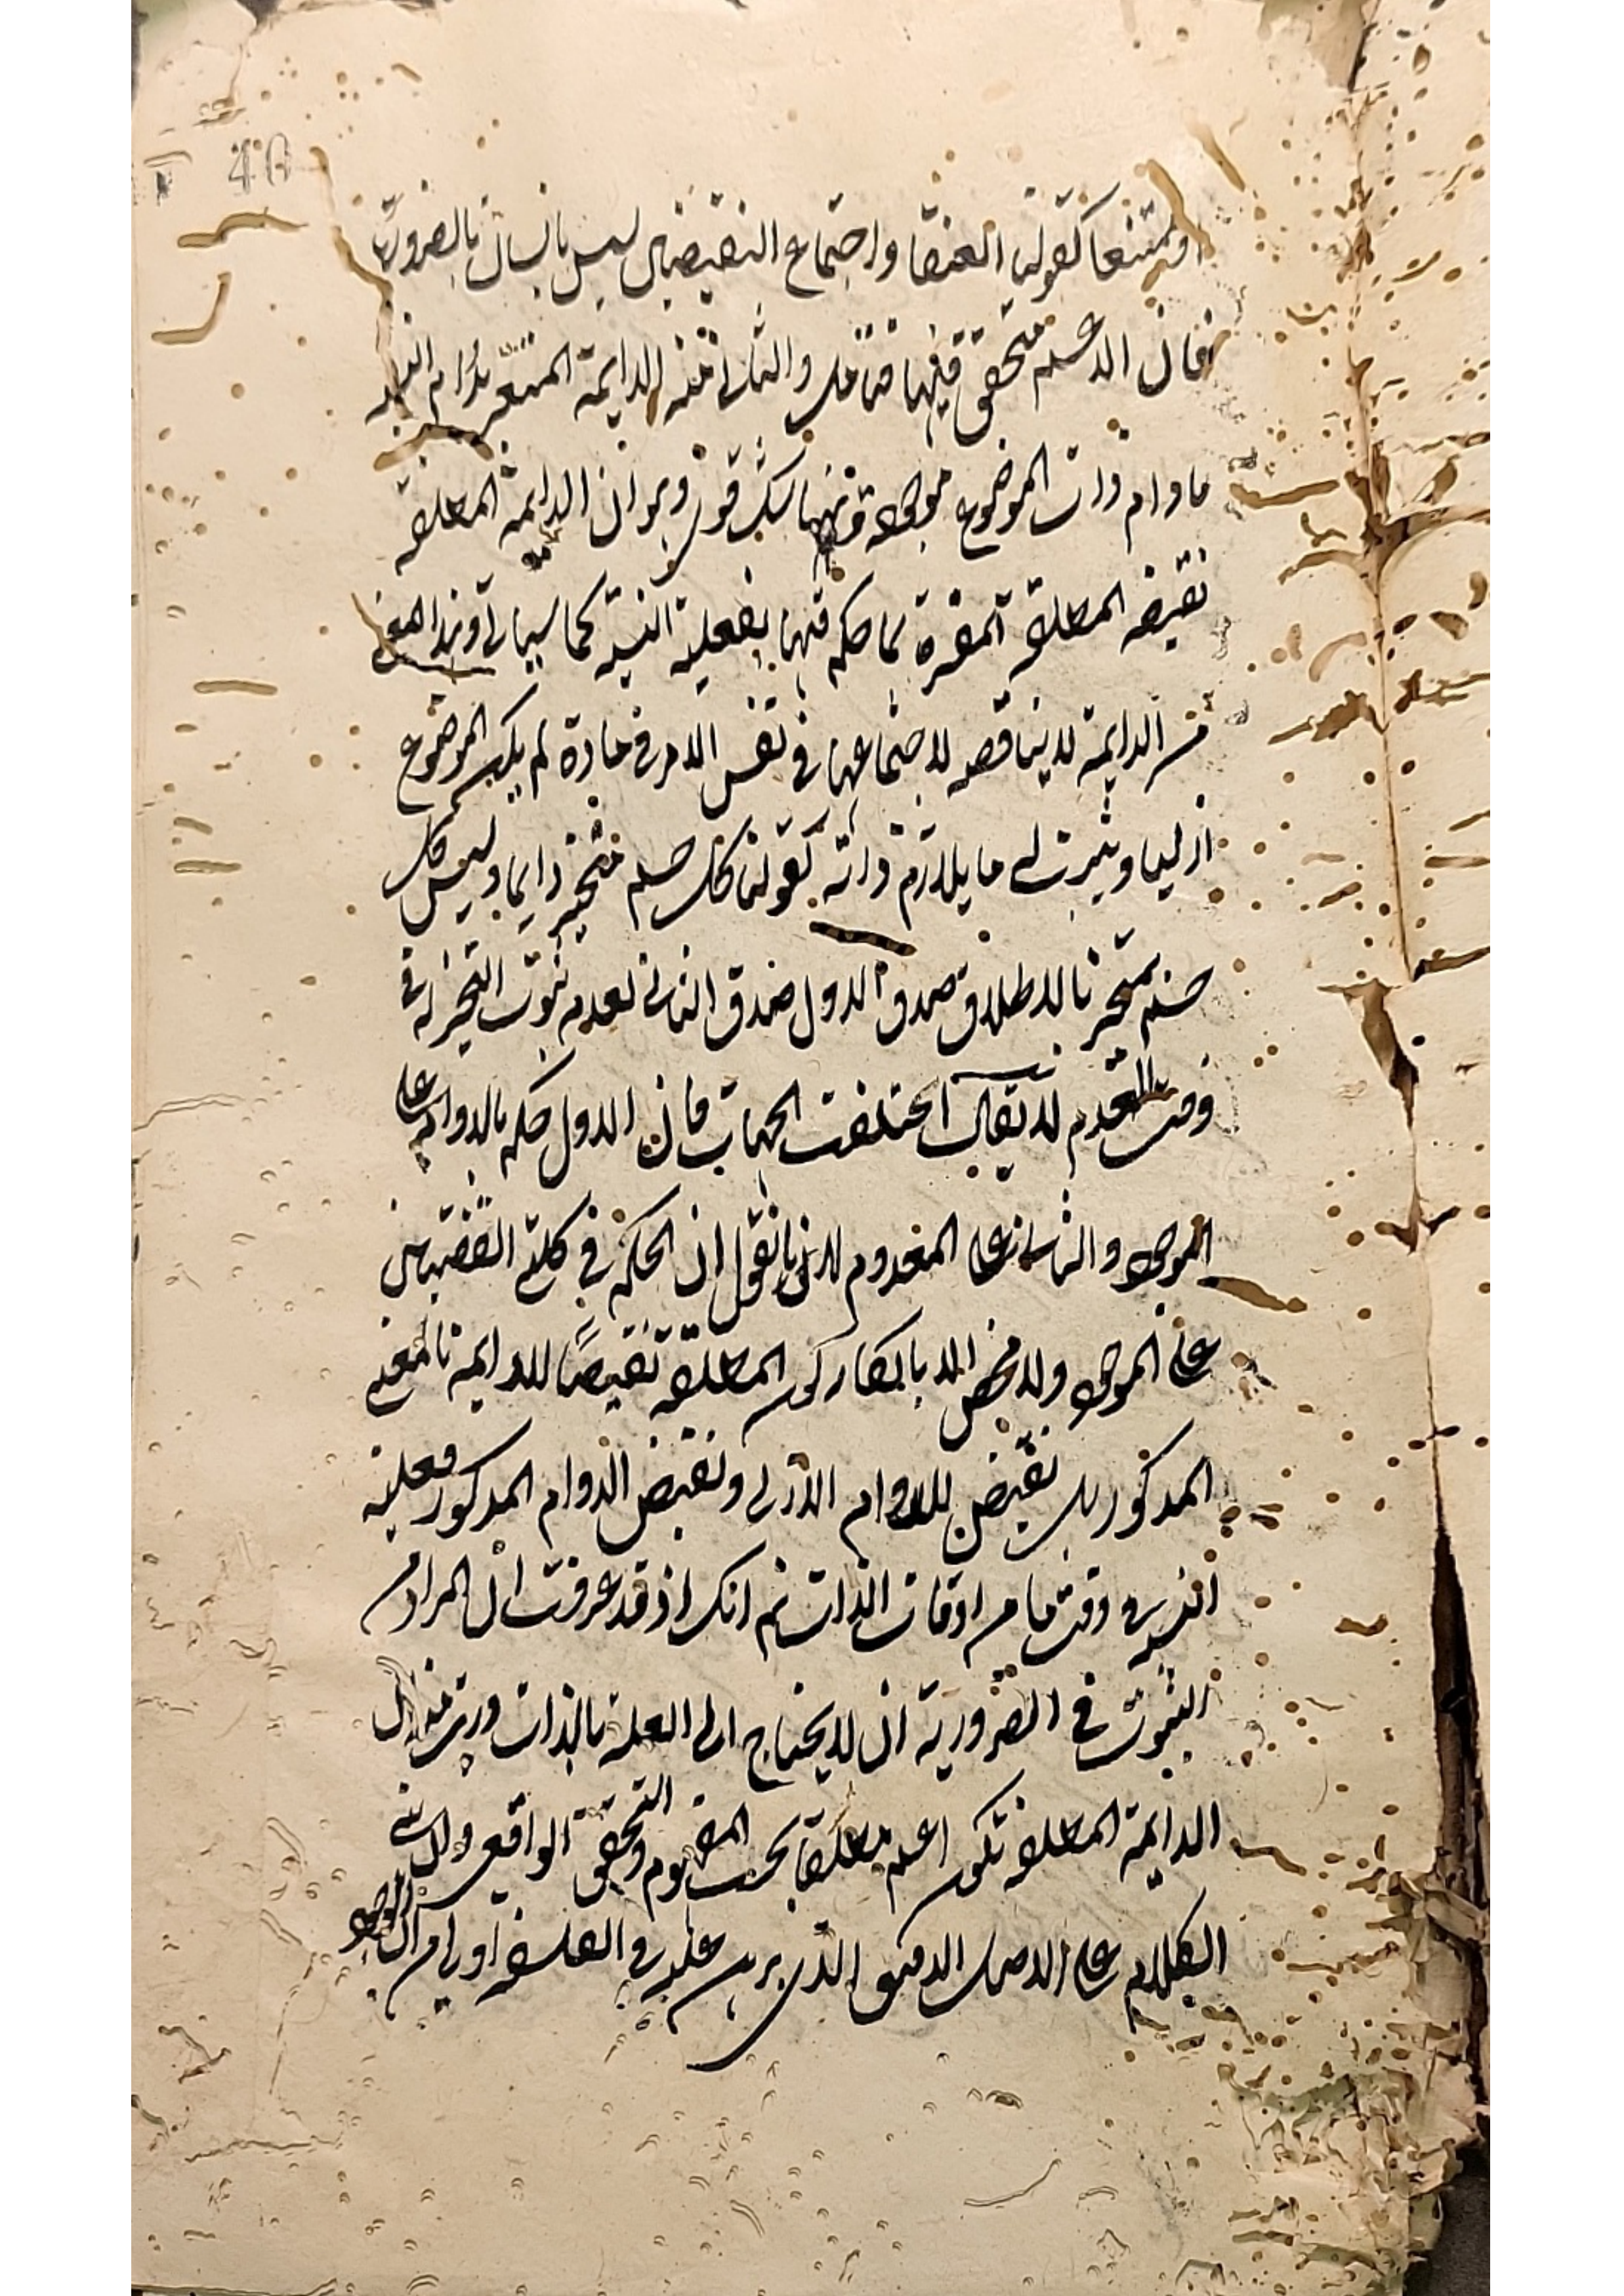 او ممتنعا كقولنا العنقا واجتماع النقيضين ليس بانسان بالضرورة
فان الاعم متحقق فيها فتامل والثانى منه الدايمة المعتبر بدوام النسبة
مادام ذات الموضوع موجودة وفيها شك قوى وهو ان الدايمة المطلقة
نقيضه المطلقة المفسرة بما حكم فيها بفعلية النسبة كما سياتى وهذا المعنى
من الدايمة لا يناقضه لاجتماعها فى نفس الامر فى مادة لم يكن الموضوع
ازليا ويثبت له ما يلازم ذاته كقولنا كل جسم متحيز دايما وليس كل
جسم بمتحيز بالاطلاق صدق الاول صدق الثانى لعدم ثبوت التحيز له فى
وقت العدم لا يقال اختلفت الجهات فان الاول حكم بالدوام على
الموجود والثانى على المعدوم لانا نقول ان الحكم فى كلتى القضيتين
على الموجود ولا مخلص الا بانكار كون المطلقة نقيضا للدايمة بالمعنى
المذكور بل نقيض للدوام الازلى ونقيض الدوام المذكور فعلية
النسبة وقت ما من اوقات الذات ثم انك اذ قد عرفت ان المراد من
الثبوت فى الضرورية ان لا يحتاج الى العلة بالذات دريت ان
الدايمة المطلقة تكون اعم مطلقا بحسب المفهوم والتحقق الواقعى
الكلام على الاصل الدقيق الذى برهن عليه فى الفلسفة اولى من ان